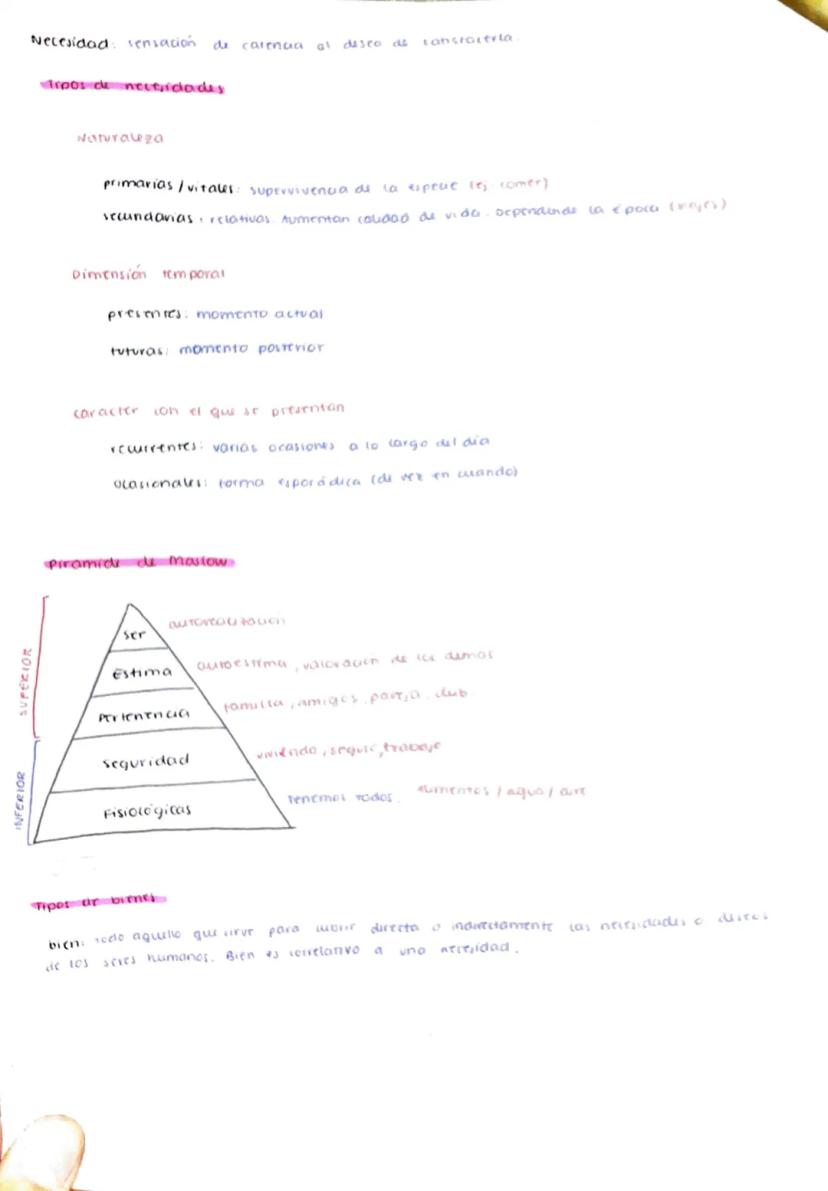 Necesidad: sensación de carencia al deseo de satisfacerla.
Tipos de necesidades
Naturaleza
primarias/vitales: supervivencia de la especie (ej comer)
secundarias: relativas. Aumentan calidad de vida. Dependiendo la época (viajes)
Dimensión temporal
presentes: momento actual
futuras: momento posterior
carácter con el que se presentan
recurrentes: varias ocasiones a lo largo del día
ocasionales: forma esporádica (de vez en cuando)
Piramide de Maslow
SUPERIOR
INFERIOR
Ser autorealización
Estima autoestima, valoración de los demás
Pertenencia familia, amigos, pareja, club
Seguridad vivienda, seguro, trabajo
Fisiológicas tenemos todos. alimentos / agua / aire
Tipos de bienes
bien: todo aquello que sirve para cubrir directa o indirectamente las necesidades o deseos
de los seres humanos. Bien es correlativo a una necesidad.